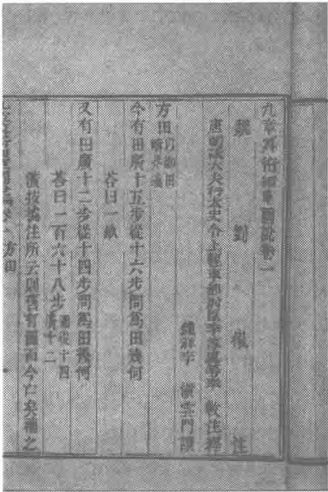 九章算術細草圖說卷一
魏 劉 徽 注
唐朝議大夫行太史令上輕車都尉臣李淳風等奉 敕注釋
鍾祥李 潢雲門譔
方田以御田疇界域
今有田廣十五步從十六步問為田幾何
荅曰一畝
又有田廣十二步從十四步問為田幾何
荅曰一百六十八步圖從十四廣十二
潢按據注所云則舊有圖而今亡矣補之
卷一 方田